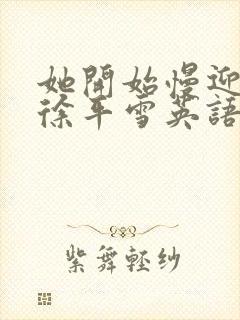 她開始慢迎
徐年雪英語
紫舞輕紗